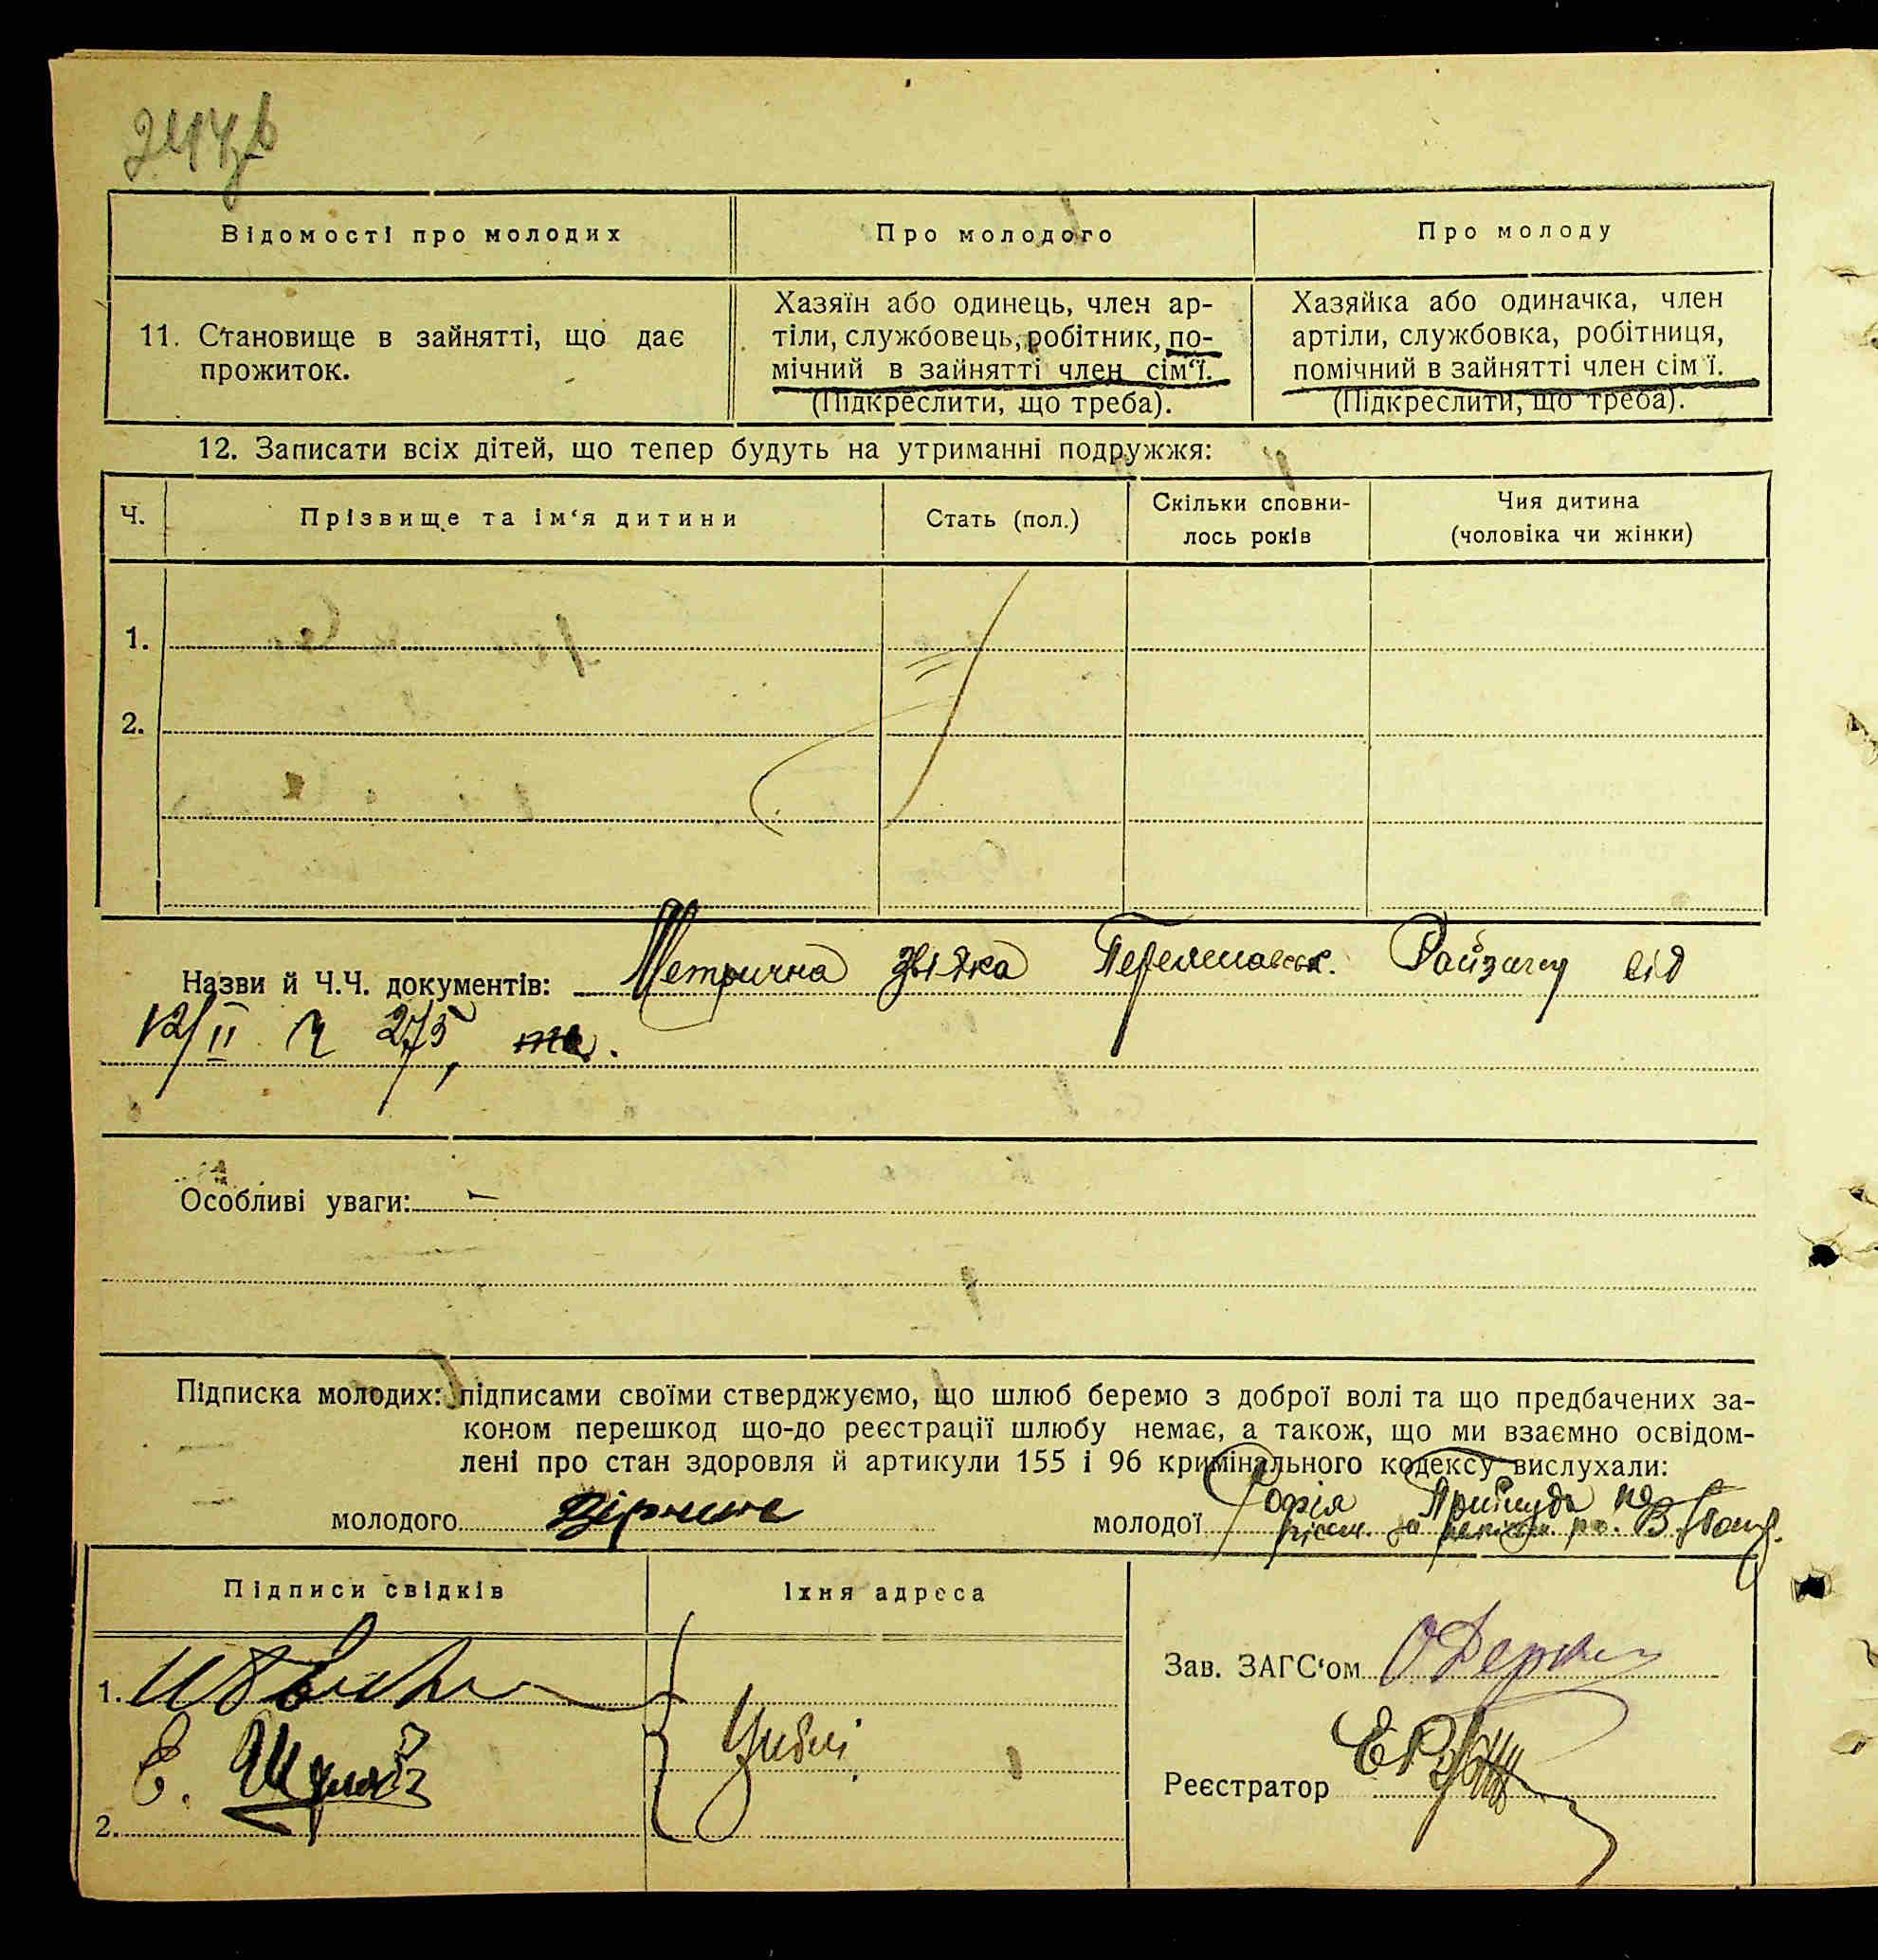 Відомості про молодих
Про молодого
Про молоду
11. Становище в зайнятті, що дає
прожиток.
Хазяїн або одинець, член ар-
тіли, службовець, робітник, по-
мічний в зайнятті член сім'ї.
(Підкреслити, що треба).
Хазяйка або одиначка, член
артіли, службовка, робітниця,
помічний в зайнятті член сім'ї.
(Підкреслити, що треба).
12. Записати всіх дітей, що тепер будуть на утриманні подружжя:
Ч.
Прізвище та ім'я дитини
Стать (пол.)
Скільки сповни-
лось років
Чия дитина
(чоловіка чи жінки)
1.
2.
Назви й Ч.Ч. документів: Метрична звідка Переяславськ. Райзагсу від
12/II ч 275,
Особливі уваги: —
Підписка молодих: підписами своїми стверджуємо, що шлюб беремо з доброї волі та що предбачених за-
коном перешкод що-до реєстрації шлюбу немає, а також, що ми взаємно освідом-
лені про стан здоровля й артикули 155 і 96 кримінального кодексу вислухали:
молодого
молодої Софія
Підписи свідків
Їхня адреса
1.
2. Е.
Циблі
Зав. ЗАГС'ом
Реєстратор